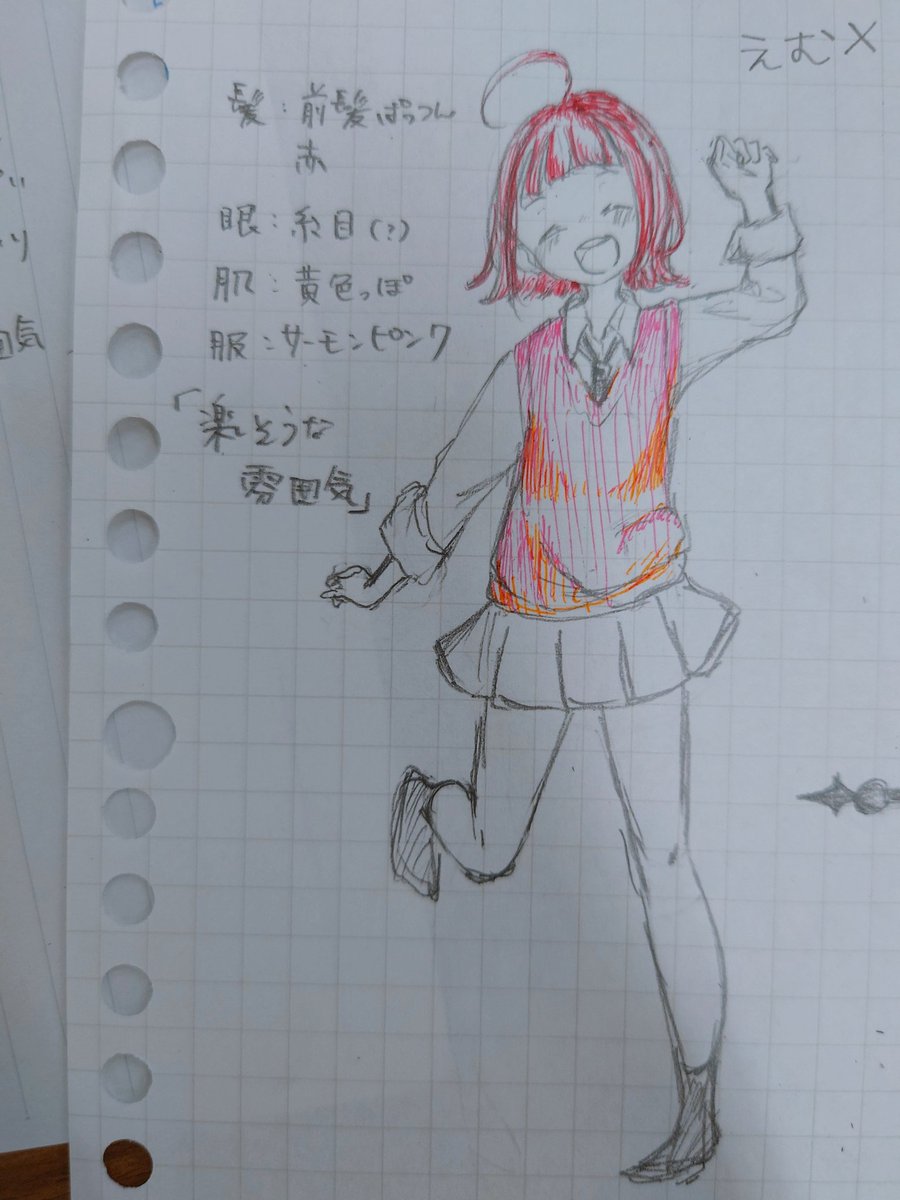 えむ×
髪：前髪ぱっつん
赤
眼：糸目(?)
肌：黄色っぽ
服：サーモンピンク
「楽しそうな
雰囲気」
い
り
囲気